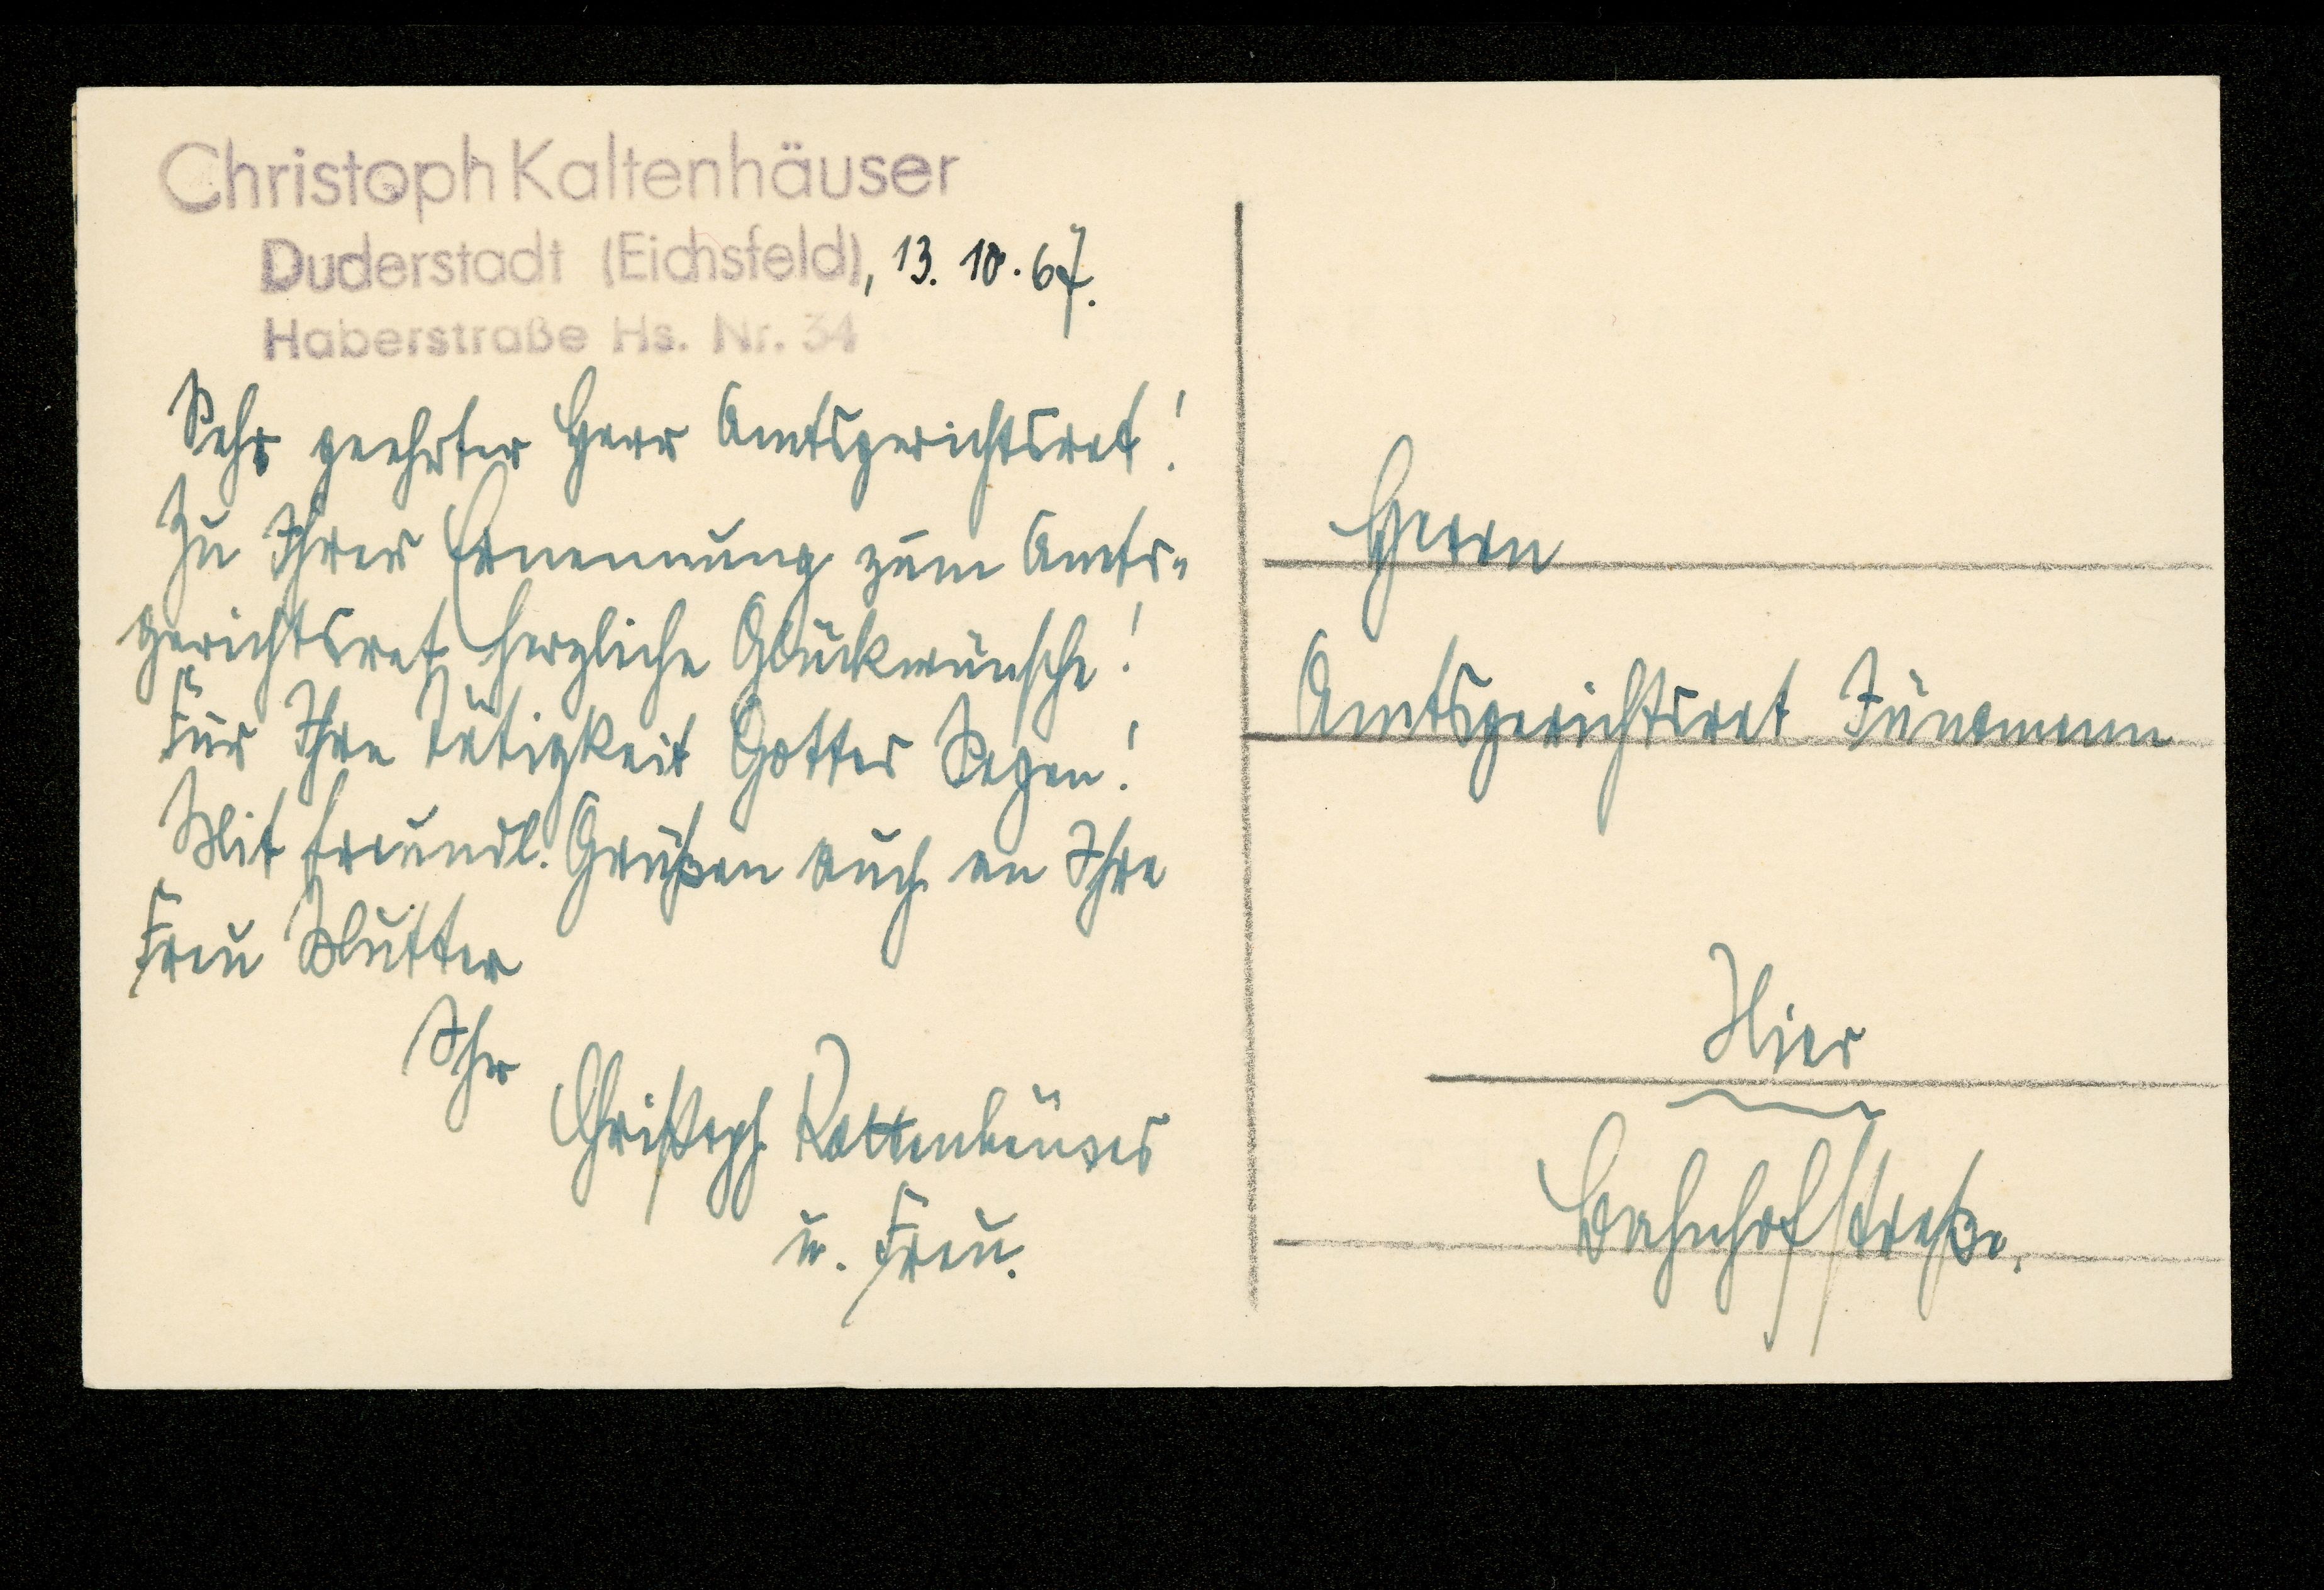 Christoph Kaltenhäuser
Duderstadt (Eichsfeld), 13. 10. 67.
Haberstraße Hs. Nr. 34
Sehr geehrter Herr Amtsgerichtsrat!
Zu Ihrer Ernennung zum Amts-
gerichtsrat herzliche Glückwünsche!
Für Ihre Tätigkeit Gottes Segen!
Mit freundl. Grüßen auch an Ihre
Frau Mutter
Ihr
Christoph Kaltenhäuser
u. Frau.
Herrn
Amtsgerichtsrat
Hier
Bahnhofstraße.